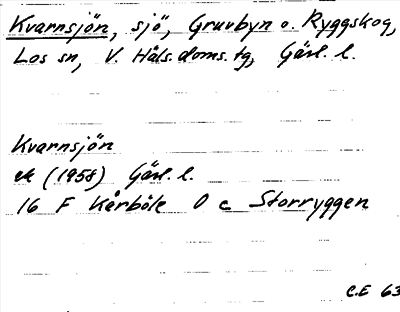 Kvarnsjön, sjö, Gruvbyn o. Ryggskog,
Los sn, V. Häls. doms. tg, Gävl. l.
Kvarnsjön
ek (1958) Gävl. l.
16 F Kårböle O c Storryggen
C.E 63